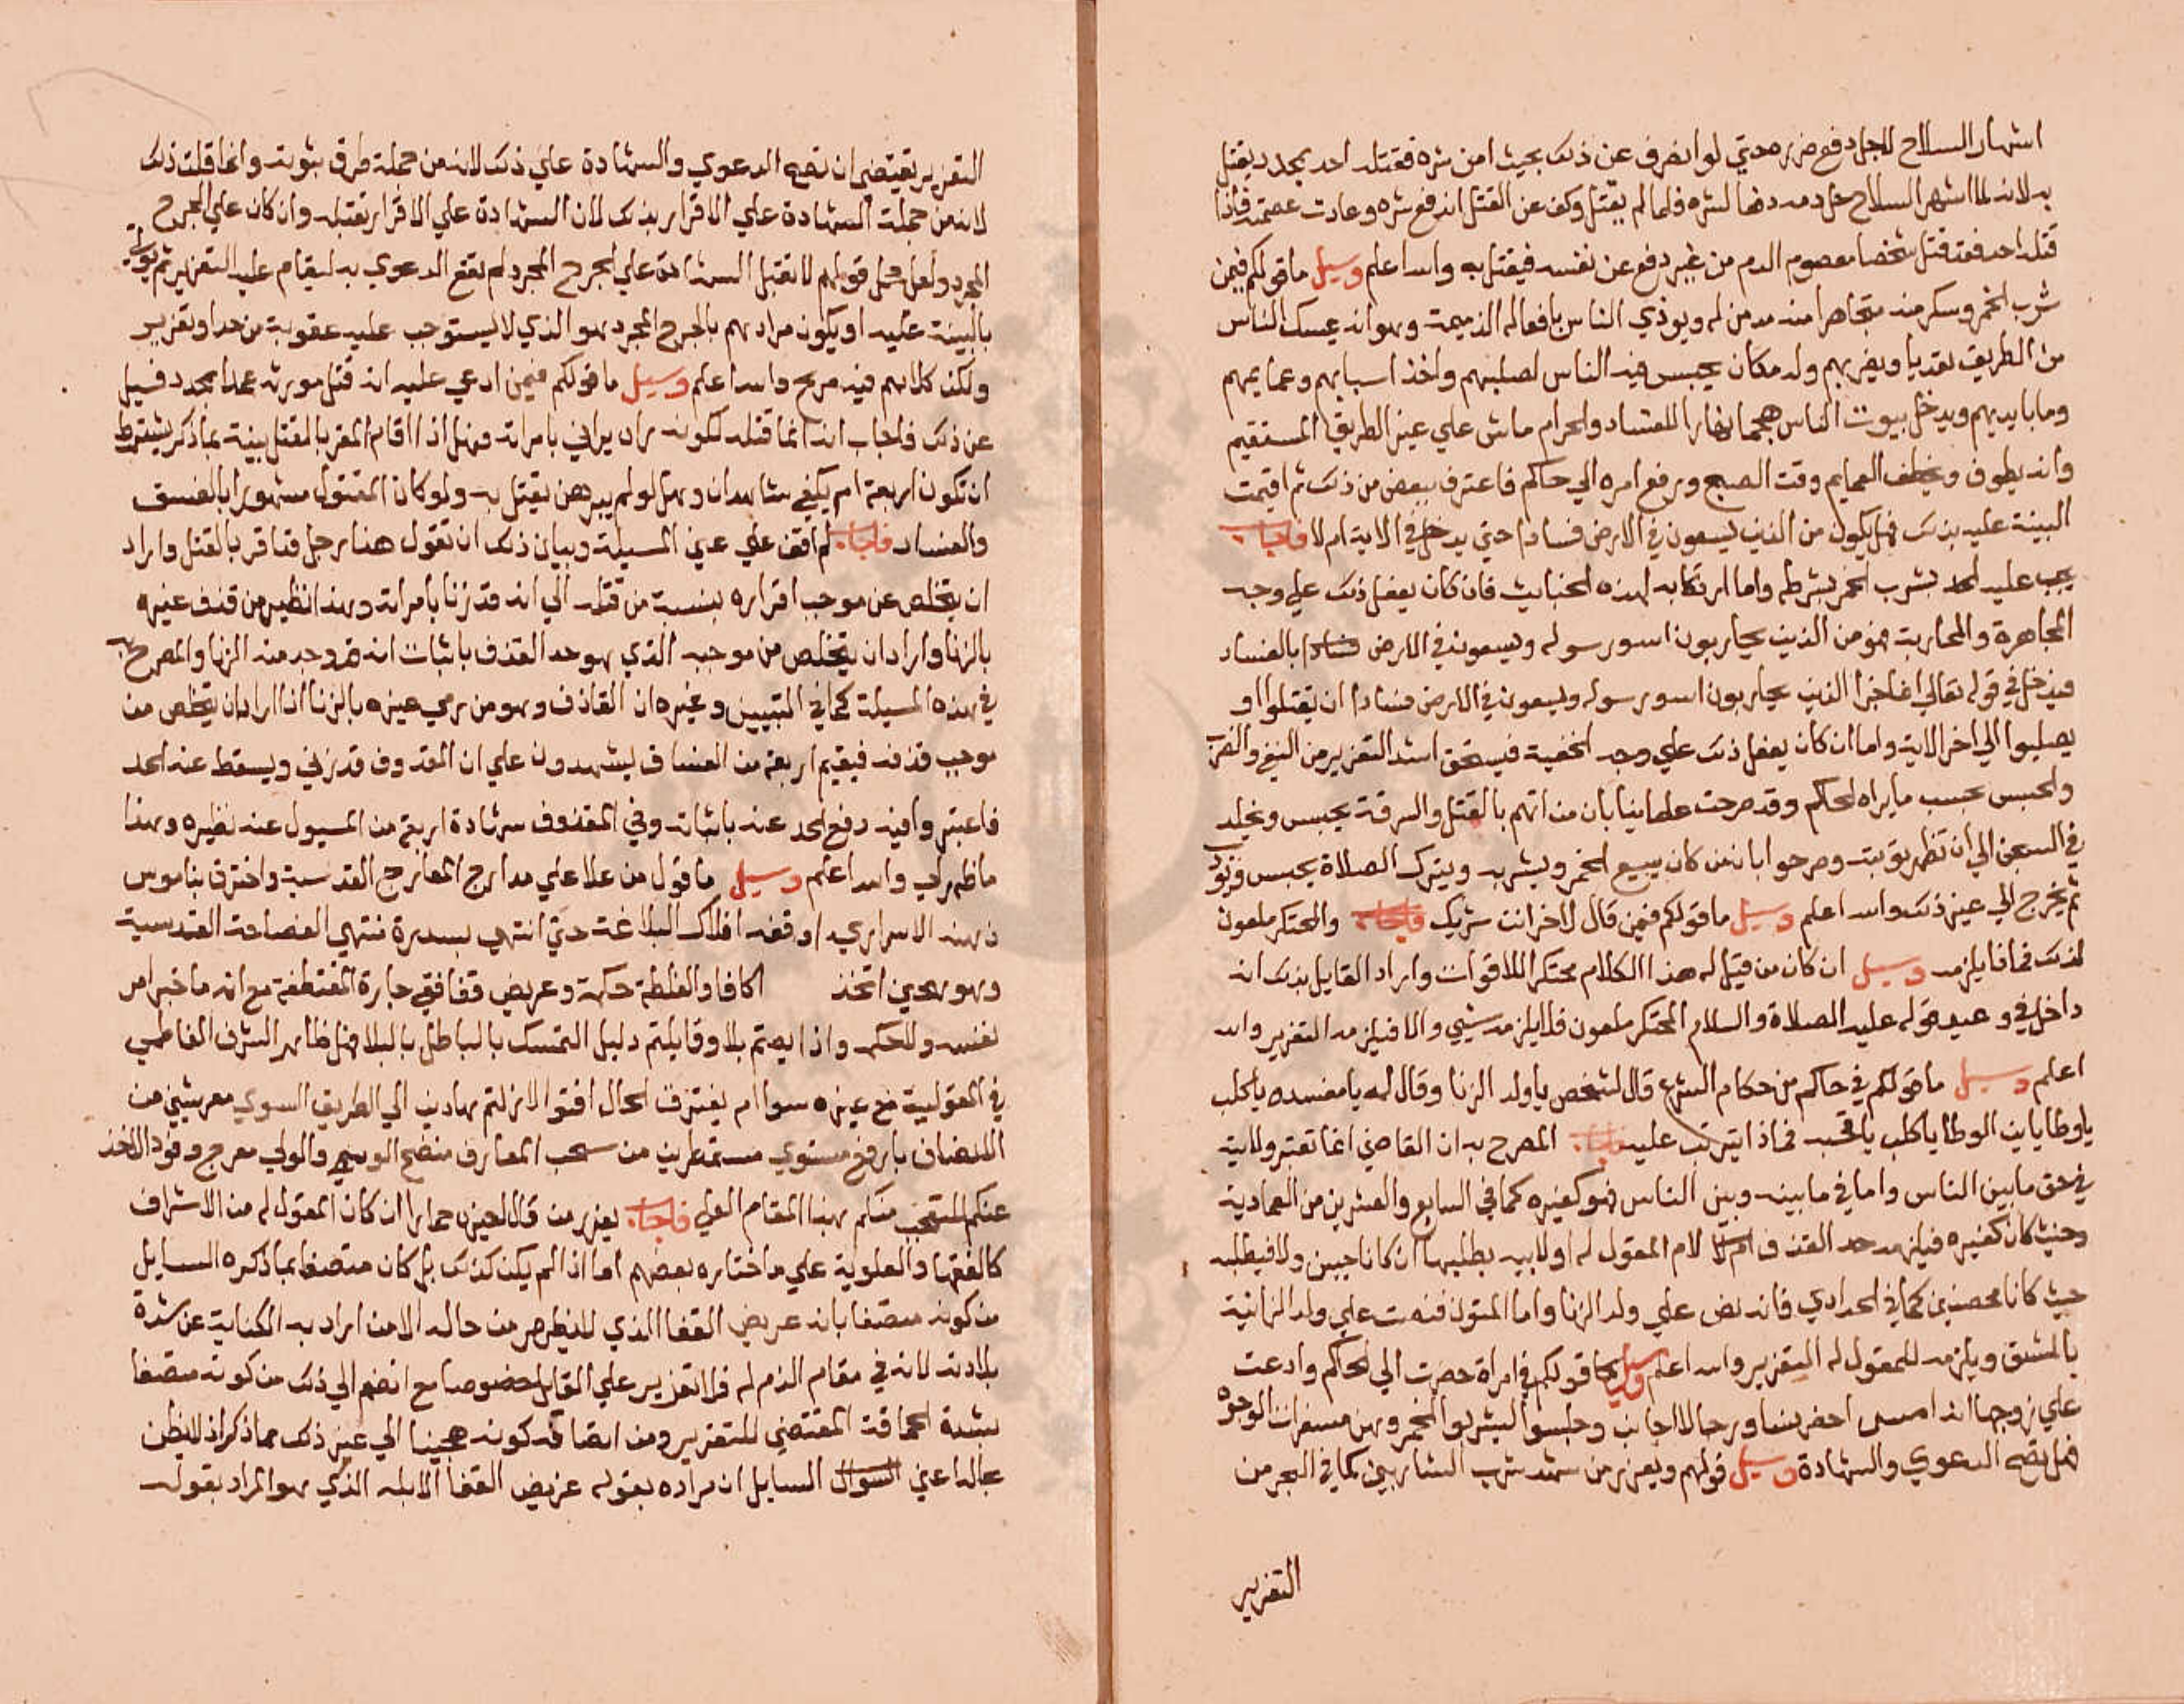 اشهار السلاح لاجل دفع ضرره حتي لو انصرف عن ذلك بحيث امن شره فقتله احد بمحدد يقتل
به لانه لما اشهر السلاح حل دمه دفعا لشره فلما لم يقتل وكف عن القتل اندفع شره وعادت عصمته فاذا
قتله احد فقد قتل شخصا معصوم الدم من غير دفع عن نفسه فيقتل به والله اعلم وسيل ما قولكم فيمن
شرب الخمر وسكر منه متجاهرا منه مدمن له ويوذي الناس بافعاله الذميمة وهو انه يمسك الناس
من الطريق تعديا ويضربهم وله مكان يحبس فيه الناس لصلبهم واخذ اسبابهم وعمايمهم
وما بايديهم ويدخل بيوت الناس هجما نهارا للفساد والحرام ماش علي غير الطريق المستقيم
وانه يطوف ويخطف العمايم وقت الصبح ورفع امره الي حاكم فاعترف ببعض من ذلك ثم اقيمت
البينة عليه بذلك فهل يكون من الذين يسعون في الارض فسادا حتي يدخل في الاية ام لا فاجاب
يجب عليه الحد بشرب الخمر بشرطه واما ارتكابه لهذه الخبايث فان كان يفعل ذلك علي وجه
المجاهرة والمحاربة فهو من الذين يحاربون الله ورسوله ويسعون في الارض فسادا بالفساد
فيدخل في قوله تعالي انما جزا الذين يحاربون الله ورسوله ويسعون في الارض فسادا ان يقتلوا او
يصلبوا الي اخر الاية واما ان كان يفعل ذلك علي وجه الخفية فيستحق اشد التعزير من النفي والضرب
والحبس بحسب ما يراه الحاكم وقد صرحت علماينا بان من اتهم بالقتل والسرقة يحبس ويخلد
في السجن الي ان تظهر توبته وصرحوا بان من كان يبيع الخمر ويشربه ويترك الصلاة يحبس فيودب
ثم يخرج الي غير ذلك والله اعلم وسيل ما قولكم فيمن قال لاخر انت شريك فاجاب والمحتكر ملعون
لذلك فماذا يلزمه وسيل ان كان من قيل له هذا الكلام محتكرا للاقوات واراد القايل بذلك انه
داخل في وعيد قوله عليه الصلاة والسلام المحتكر ملعون فلا يلزمه شيي والا فيلزمه التعزير والله
اعلم وسيل ما قولكم في حاكم من حكام الشرع قال لشخص يا ولد الزنا وقال له يا مفسده يا كلب
يا وطا يا بن الوطا يا كلب يا قحبه فماذا يترتب عليه فاجاب المصرح به ان القاضي انما تعتبر ولايته
في حق ما بين الناس واما في ما بينه وبين الناس فهو كغيره كما في السابع والعشرين من العمادية
وحيث كان كغيره فيلزمه حد القذف لام المقول له او لابيه بطلبهما ان كانا حيين ولا فيطلبه
حيث كانا محصنين كما في الحدادي فانه نص علي ولد الزنا واما المتون فنصت علي ولد الزانية
بالمشق ويلزمه للمقول له التعزير والله اعلم وسيل ما قولكم في امراة حضرت الي الحاكم وادعت
علي زوجها انه امسي احضر نسا ورجالا اجانب وجلسوا ليشربوا الخمر وهن مسفرات الوجوه
فهل يصح الدعوي والشهادة وسيل قولهم ويعزر من شهد شرب الشاربين كما في البحر من
التعزير
التعزير يقتضي ان تصح الدعوي والشهادة علي ذلك لانه من جملة طرق ثبوته وانما قلت ذلك
لانه من جملة الشهادة علي الاقرار بذلك لان الشهادة علي الاقرار تقبل وان كان علي الجرح
المجرد ولعل محل قولهم لا تقبل الشهادة علي الجرح المجرد لم تقع الدعوي به ليقام عليه التعزير ثم يوتي
بالبينة عليه او يكون مرادهم بالجرح المجرد هو الذي لا يستوجب عليه عقوبة من حد او تعزير
ولكن كلامهم فيه صريح والله اعلم وسيل ما قولكم فيمن ادعي عليه انه قتل مورثه عمدا بمحدد فسيل
عن ذلك فاجاب انه انما قتله لكونه راه يزاني بامراته فهل اذا اقام المقر بالقتل بينة بما ذكر يشترط
ان تكون اربعة ام يكفي شاهدان وهل لو لم يبرهن يقتل به ولو كان المقتول مشهورا بالفسق
والفساد فاجاب لم اقف علي عين المسيلة وبيان ذلك ان تقول هنا رجل قد اقر بالقتل واراد
ان يتخلص عن موجب اقراره بنسبة من قتله الي انه قد زنا بامراته وهذا نظير من قذف غيره
بالزنا واراد ان يتخلص من موجبه الذي هو حد القذف باثبات انه قد وجد منه الزنا والمصرح به
في هذه المسيلة كما في التبيين وغيره ان القاذف وهو من رمي غيره بالزنا اذا اراد ان يتخلص من
موجب قذفه فيقيم اربعة من الفساق ليشهدون علي ان المقذوف قد زني ويسقط عنه الحد
فاعتبروا فيه دفع الحد عنه باثباته وفي المقذوف شهادة اربع من المسيول عنه نظيره وهذا
ما ظهر لي والله اعلم وسيل ما قول من علا علي مدارج المعارج القدسية واخترق بناموس
ذهنه الاسراري اوقفه افلاك البلاغة حتي انتهي بسدرة منتهي الفصاحة القدسية
وهو هجين اتخذ اكافا والغلطة حكمة وعريض قفا في جبارة المقتطفة مع انه ما خبر امر
نفسه والحكم واذا بهتم بلا وقايلتم دليل التمسك بالباطل بالبلا فهل ظاهر الشرف الفاطمي
في المقولية مع غيره سوا ام يفترق الحال افتوا لا زلتم هادين الي الطريق السوي معرشين من
الانصاف بارفع مستوي مستمطرين من سحب المعارف منضح الوسمي والولي معرج وفود الاخذ
عنكم المتقحب منكم بهذا المقام العلي فاجاب يعزر من قال لغيره يا حمار ان كان المقول له من الاشراف
كالفقها والعلوية علي ما اختاره بعضهم اما اذا لم يكن كذلك بل كان متصفا بما ذكره السايل
من كونه متصفا بانه عريض القفا الذي للنظرهر من حاله الا من اراد به الكناية عن شدة
بلادته لانه في مقام الذم له فلا تعزير علي القايل خصوصا مع انضم الي ذلك من كونه متصفا
بشدة الحماقة المقتضي للتعزير ومن اتصافه كونه هجينا الي غير ذلك مما ذكر اذ الظن
جالدا عني السوال السايل ان مراده بقوله عريض القفا الابله الذي هو المراد بقوله